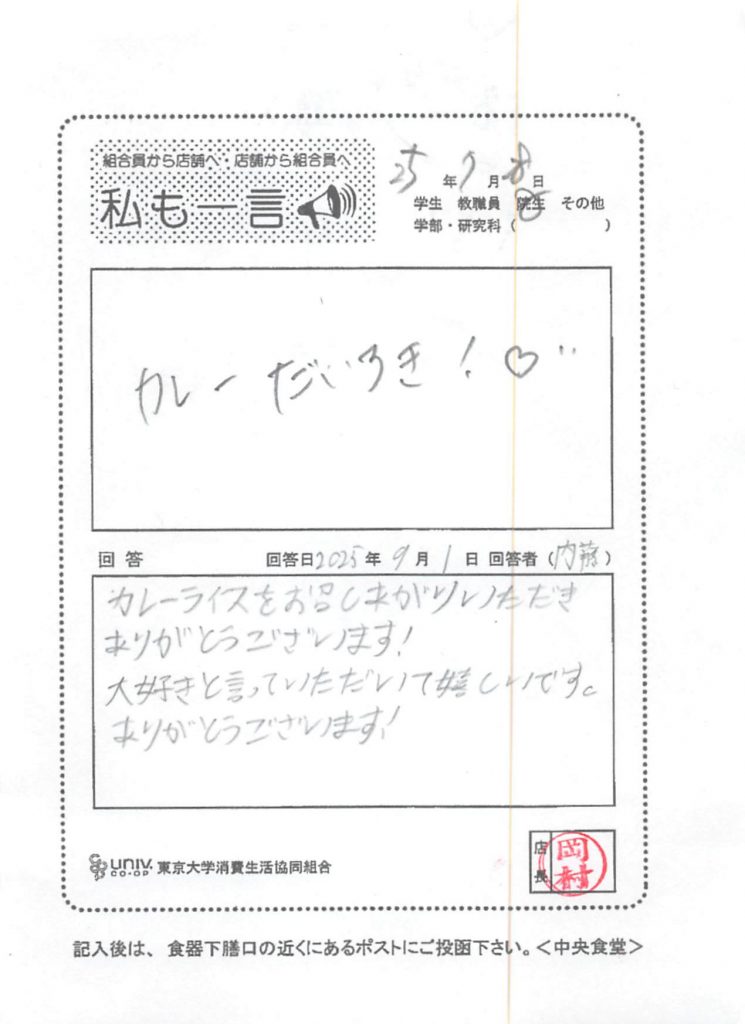 組合員から店舗へ・店舗から組合員へ
私も一言
25年9月8日
学生 教職員 院生 その他
学部・研究科( )
カレーだいすき!♡
回答 回答日2025年9月1日 回答者(内藤)
カレーライスをお召しあがりいただき
ありがとうございます!
大好きと言っていただいて嬉しいです。
ありがとうございます!
univ. CO-OP 東京大学消費生活協同組合
店長 岡村
記入後は、食器下膳口の近くにあるポストにご投函下さい。<中央食堂>